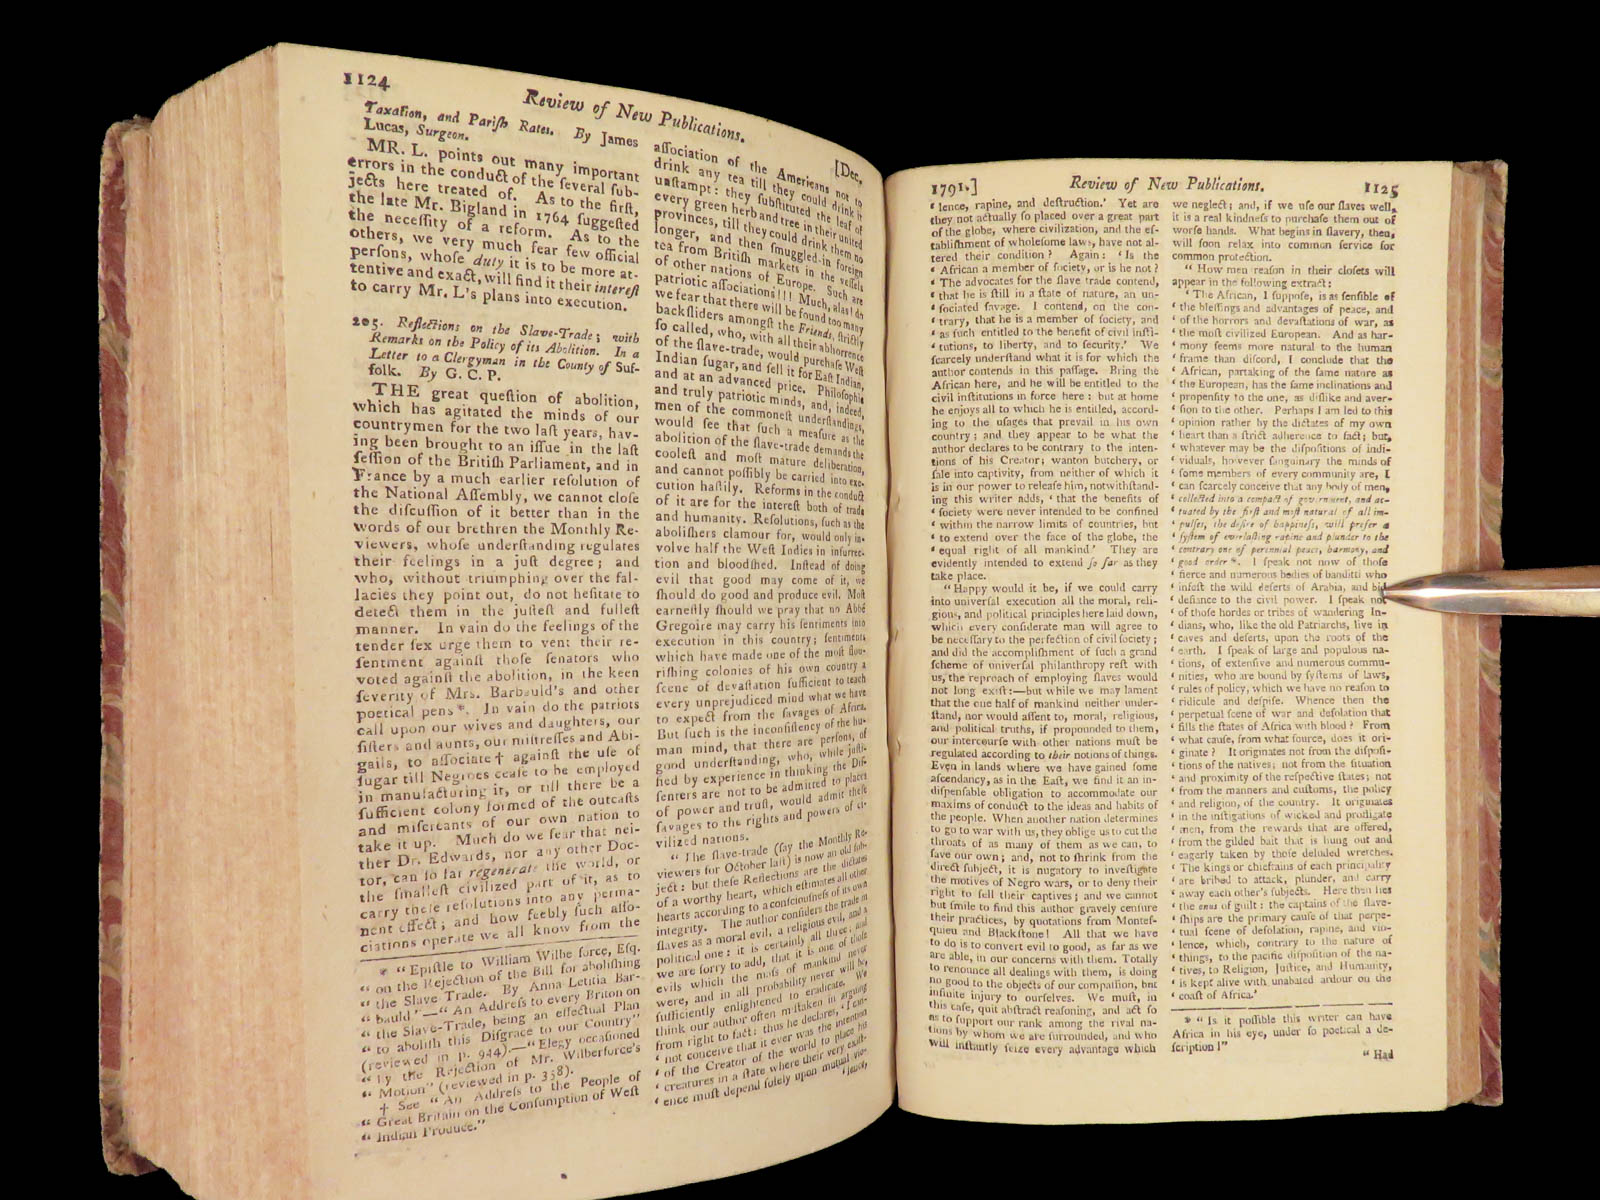 1124
Review of New Publications.
[Dec.
Taxation, and Pariſh Rates. By James
Lucas, Surgeon.
MR. L. points out many important
errors in the conduct of the ſeveral ſub-
jects here treated of. As to the firſt,
the late Mr. Bigland in 1764 ſuggeſted
the neceſſity of a reform. As to the
others, we very much fear few official
perſons, whoſe duty it is to be more at-
tentive and exact, will find it their intereſt
to carry Mr. L's plans into execution.
205. Reflections on the Slave-Trade; with
Remarks on the Policy of its Abolition. In a
Letter to a Clergyman in the County of Suf-
folk. By G. C. P.
THE great queſtion of abolition,
which has agitated the minds of our
countrymen for the two laſt years, hav-
ing been brought to an iſſue in the laſt
ſeſſion of the Britiſh Parliament, and in
France by a much earlier reſolution of
the National Aſſembly, we cannot cloſe
the diſcuſſion of it better than in the
words of our brethren the Monthly Re-
viewers, whoſe underſtanding regulates
their feelings in a juſt degree; and
who, without triumphing over the fal-
lacies they point out, do not heſitate to
detect them in the juſteſt and fulleſt
manner. In vain do the feelings of the
tender ſex urge them to vent their re-
ſentment againſt thoſe ſenators who
voted againſt the abolition, in the keen
ſeverity of Mrs. Barbauld's and other
poetical pens*. In vain do the patriots
call upon our wives and daughters, our
ſiſters and aunts, our miſtreſſes and Abi-
gails, to aſſociate† againſt the uſe of
ſugar till Negroes ceaſe to be employed
in manufacturing it, or till there be a
ſufficient colony formed of the outcaſts
and miſcreants of our own nation to
take it up. Much do we fear that nei-
ther Dr. Edwards, nor any other Doc-
tor, can ſo far regenerate the world, or
the ſmalleſt civilized part of it, as to
carry theſe reſolutions into any perma-
nent effect; and how feebly ſuch aſſo-
ciations operate we all know from the
* “ Epiſtle to William Wilberforce, Eſq.
“ on the Rejection of the Bill for aboliſhing
“ the Slave Trade. By Anna Letitia Bar-
“ bauld”—“ An Addreſs to every Briton on
“ the Slave-Trade, being an effectual Plan
“ to aboliſh this Diſgrace to our Country”
(reviewed in p. 944).—“ Elegy occaſioned
“ by the Rejection of Mr. Wilberforce's
“ Motion” (reviewed in p. 358).
† See “ An Addreſs to the People of
“ Great Britain on the Conſumption of Weſt
“ Indian Produce.”
aſſociation of the Americans not to
drink any tea till they could drink it
unſtampt: they ſubſtituted the leaf of
every green herb and tree in their united
provinces, till they could drink them no
longer, and then ſmuggled-in foreign
tea from Britiſh markets in the veſſels
of other nations of Europe. Such are
patriotic aſſociations!!! Much, alas! do
we fear that there will be found too many
backſliders amongſt the Friends, ſtrictly
ſo called, who, with all their abhorrence
of the ſlave-trade, would purchaſe Weſt
Indian ſugar, and ſell it for Eaſt Indian,
and at an advanced price. Philoſophic
and truly patriotic minds, and, indeed,
men of the commoneſt underſtandings,
would ſee that ſuch a meaſure as the
abolition of the ſlave-trade demands the
cooleſt and moſt mature deliberation,
and cannot poſſibly be carried into exe-
cution haſtily. Reforms in the conduct
of it are for the intereſt both of trade
and humanity. Reſolutions, ſuch as the
aboliſhers clamour for, would only in-
volve half the Weſt Indies in inſurrec-
tion and bloodſhed. Inſtead of doing
evil that good may come of it, we
ſhould do good and produce evil. Moſt
earneſtly ſhould we pray that no Abbé
Gregoire may carry his ſentiments into
execution in this country; ſentiments
which have made one of the moſt flou-
riſhing colonies of his own country a
ſcene of devaſtation ſufficient to teach
every unprejudiced mind what we have
to expect from the ſavages of Africa.
But ſuch is the inconſiſtency of the hu-
man mind, that there are perſons, of
good underſtanding, who, while juſti-
fied by experience in thinking the Diſ-
ſenters are not to be admitted to places
of power and truſt, would admit theſe
ſavages to the rights and powers of ci-
vilized nations.
“ The ſlave-trade (ſay the Monthly Re-
viewers for October laſt) is now an old ſub-
ject: but theſe Reflections are the dictates
of a worthy heart, which eſtimates all other
hearts according to a conſciouſneſs of its own
integrity. The author conſiders the trade in
ſlaves as a moral evil, a religious evil, and a
political one: it is certainly all three; and
we are ſorry to add, that it is one of thoſe
evils which the maſs of mankind never
were, and in all probability never will be,
ſufficiently enlightened to eradicate. We
think our author often miſtaken in arguing
from right to fact: thus he declares, ‘ I can-
‘ not conceive that it ever was the intention
‘ of the Creator of the world to place his
‘ creatures in a ſtate where their very exiſt-
‘ ence muſt depend ſolely upon mutual vio-
‘ lence,
1791.]
Review of New Publications.
1125
‘ lence, rapine, and deſtruction.’ Yet are
they not actually ſo placed over a great part
of the globe, where civilization, and the eſ-
tabliſhment of wholeſome laws, have not al-
tered their condition? Again: ‘ Is the
‘ African a member of ſociety, or is he not?
‘ The advocates for the ſlave trade contend,
‘ that he is ſtill in a ſtate of nature, an un-
‘ ſociated ſavage. I contend, on the con-
‘ trary, that he is a member of ſociety, and
‘ as ſuch entitled to the benefit of civil inſti-
‘ tutions, to liberty, and to ſecurity.’ We
ſcarcely underſtand what it is for which the
author contends in this paſſage. Bring the
African here, and he will be entitled to the
civil inſtitutions in force here: but at home
he enjoys all to which he is entitled, accord-
ing to the uſages that prevail in his own
country; and they appear to be what the
author declares to be contrary to the inten-
tions of his Creator; wanton butchery, or
ſale into captivity, from neither of which it
is in our power to releaſe him, notwithſtand-
ing this writer adds, ‘ that the benefits of
‘ ſociety were never intended to be confined
‘ within the narrow limits of countries, but
‘ to extend over the face of the globe, the
‘ equal right of all mankind.’ They are
evidently intended to extend ſo far as they
take place.
“ Happy would it be, if we could carry
into univerſal execution all the moral, reli-
gious, and political principles here laid down,
which every conſiderate man will agree to
be neceſſary to the perfection of civil ſociety;
and did the accompliſhment of ſuch a grand
ſcheme of univerſal philanthropy reſt with
us, the reproach of employing ſlaves would
not long exiſt:—but while we may lament
that the one half of mankind neither under-
ſtand, nor would aſſent to, moral, religious,
and political truths, if propounded to them,
our intercourſe with other nations muſt be
regulated according to their notions of things.
Even in lands where we have gained ſome
aſcendancy, as in the Eaſt, we find it an in-
diſpenſable obligation to accommodate our
maxims of conduct to the ideas and habits of
the people. When another nation determines
to go to war with us, they oblige us to cut the
throats of as many of them as we can, to
ſave our own; and, not to ſhrink from the
direct ſubject, it is nugatory to inveſtigate
the motives of Negro wars, or to deny their
right to ſell their captives; and we cannot
but ſmile to find this author gravely cenſure
their practices, by quotations from Monteſ-
quieu and Blackſtone! All that we have
to do is to convert evil to good, as far as we
are able, in our concerns with them. Totally
to renounce all dealings with them, is doing
no good to the objects of our compaſſion, but
infinite injury to ourſelves. We muſt, in
this caſe, quit abſtract reaſoning, and act ſo
as to ſupport our rank among the rival na-
tions by whom we are ſurrounded, and who
will inſtantly ſeize every advantage which
we neglect; and, if we uſe our ſlaves well,
it is a real kindneſs to purchaſe them out of
worſe hands. What begins in ſlavery, then,
will ſoon relax into common ſervice for
common protection.
“ How men reaſon in their cloſets will
appear in the following extract:
‘ The African, I ſuppoſe, is as ſenſible of
‘ the bleſſings and advantages of peace, and
‘ of the horrors and devaſtations of war, as
‘ the moſt civilized European. And as har-
‘ mony ſeems more natural to the human
‘ frame than diſcord, I conclude that the
‘ African, partaking of the ſame nature as
‘ the European, has the ſame inclinations and
‘ propenſity to the one, as diſlike and aver-
‘ ſion to the other. Perhaps I am led to this
‘ opinion rather by the dictates of my own
‘ heart than a ſtrict adherence to fact; but,
‘ whatever may be the diſpoſitions of indi-
‘ viduals, however ſanguinary the minds of
‘ ſome members of every community are, I
‘ can ſcarcely conceive that any body of men,
‘ collected into a compact of government, and ac-
‘ tuated by the firſt and moſt natural of all im-
‘ pulſes, the deſire of happineſs, will prefer a
‘ ſyſtem of everlaſting rapine and plunder to the
‘ contrary one of perennial peace, harmony, and
‘ good order*. I ſpeak not now of thoſe
‘ fierce and numerous bodies of banditti who
‘ infeſt the wild deſerts of Arabia, and bid
‘ defiance to the civil power. I ſpeak not
‘ of thoſe hordes or tribes of wandering In-
‘ dians, who, like the old Patriarchs, live in
‘ caves and deſerts, upon the roots of the
‘ earth. I ſpeak of large and populous na-
‘ tions, of extenſive and numerous commu-
‘ nities, who are bound by ſyſtems of laws,
‘ rules of policy, which we have no reaſon to
‘ ridicule and deſpiſe. Whence then the
‘ perpetual ſcene of war and deſolation that
‘ fills the ſtates of Africa with blood? From
‘ what cauſe, from what ſource, does it ori-
‘ ginate? It originates not from the diſpoſi-
‘ tions of the natives; not from the ſituation
‘ and proximity of the reſpective ſtates; not
‘ from the manners and cuſtoms, the policy
‘ and religion, of the country. It originates
‘ in the inſtigations of wicked and profligate
‘ men, from the rewards that are offered,
‘ from the gilded bait that is hung out and
‘ eagerly taken by thoſe deluded wretches.
‘ The kings or chieftains of each principality
‘ are bribed to attack, plunder, and carry
‘ away each other's ſubjects. Here then lies
‘ the onus of guilt: the captains of the ſlave-
‘ ſhips are the primary cauſe of that perpe-
‘ tual ſcene of deſolation, rapine, and vio-
‘ lence, which, contrary to the nature of
‘ things, to the pacific diſpoſition of the na-
‘ tives, to Religion, Juſtice, and Humanity,
‘ is kept alive with unabated ardour on the
‘ coaſt of Africa.’
* “ Is it poſſible this writer can have
Africa in his eye, under ſo poetical a de-
ſcription!”
“ Had